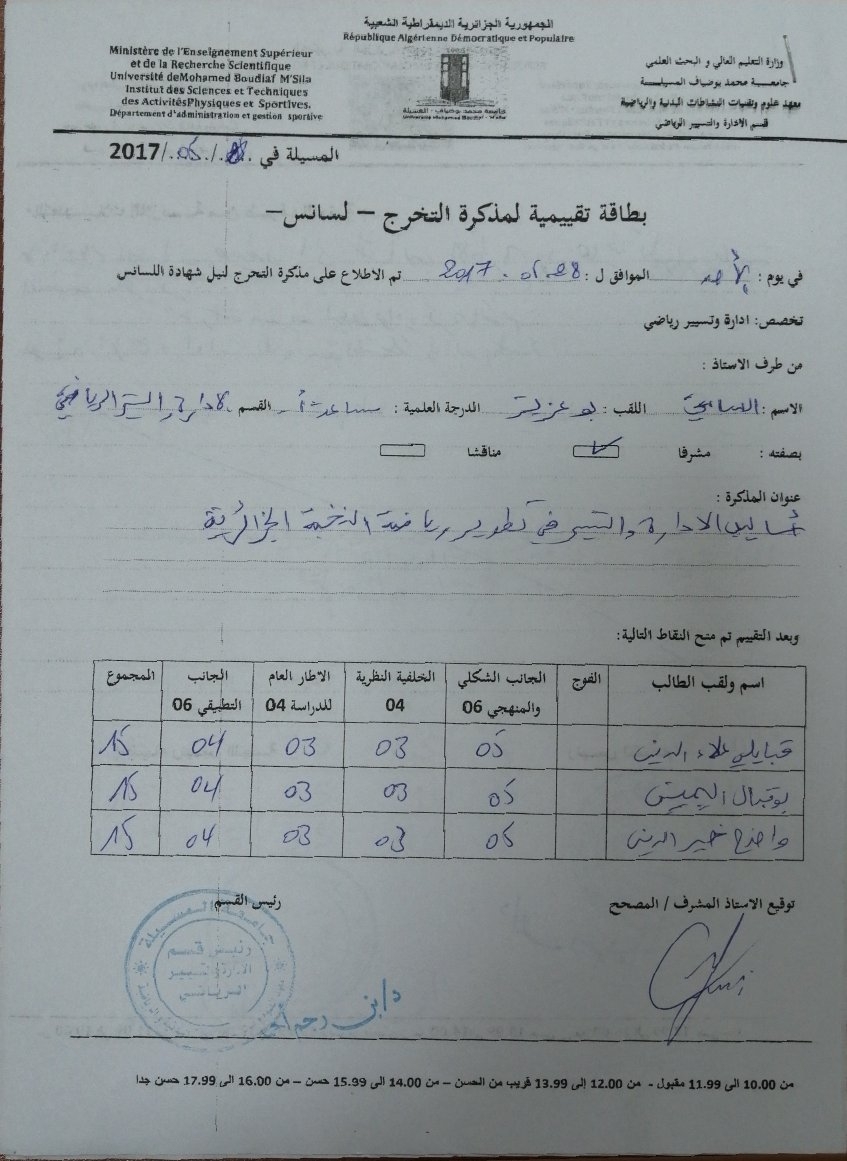 الجمهورية الجزائرية الديمقراطية الشعبية
République Algérienne Démocratique et Populaire
Ministère de l'Enseignement Supérieur
et de la Recherche Scientifique
Université deMohamed Boudiaf M'Sila
Institut des Sciences et Techniques
des ActivitésPhysiques et Sportives.
Département d'administration et gestion sportive
وزارة التعليم العالي و البحث العلمي
جامعـــة محمد بوضياف المسيلـــة
معهد علوم وتقنيات النشاطات البدنية والرياضية
قسم الادارة والتسيير الرياضي
جامعة محمد بوضياف - المسيلة
Université Mohamed Boudiaf - M'sila
المسيلة في /05/2017
بطاقة تقييمية لمذكرة التخرج – لسانس–
في يوم : الأحد الموافق ل : 28-05-2017 تم الاطلاع على مذكرة التخرج لنيل شهادة اللسانس
تخصص: ادارة وتسيير رياضي
من طرف الاستاذ :
الاسم : اللقب : بوعزيز الدرجة العلمية : القسم : الادارة والتسيير الرياضي
بصفته : مشرفا ✓ مناقشا
عنوان المذكرة :
أساليب الادارة والتسيير في تطوير رياضة النخبة الجزائرية
وبعد التقييم تم منح النقاط التالية:
اسم ولقب الطالب الفوج الجانب الشكلي والمنهجي 06 الخلفية النظرية 04 الاطار العام للدراسة 04 الجانب التطبيقي 06 المجموع
قبايلي علاء الدين 05 03 03 04 15
بوقبال اليمين 05 03 03 04 15
واضح خير الدين 05 03 03 04 15
توقيع الاستاذ المشرف / المصحح رئيس القسم
جامعة المسيلة
رئيس قسم
الإدارة و التسيير
الرياضي
من 10.00 الى 11.99 مقبول - من 12.00 إلى 13.99 قريب من الحسن – من 14.00 الى 15.99 حسن – من 16.00 الى 17.99 حسن جدا